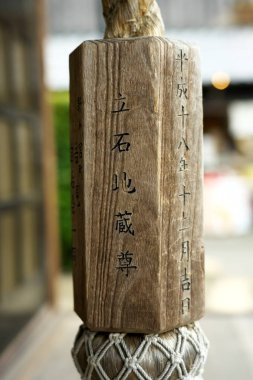 平成十八年十二月吉日
立石地蔵尊